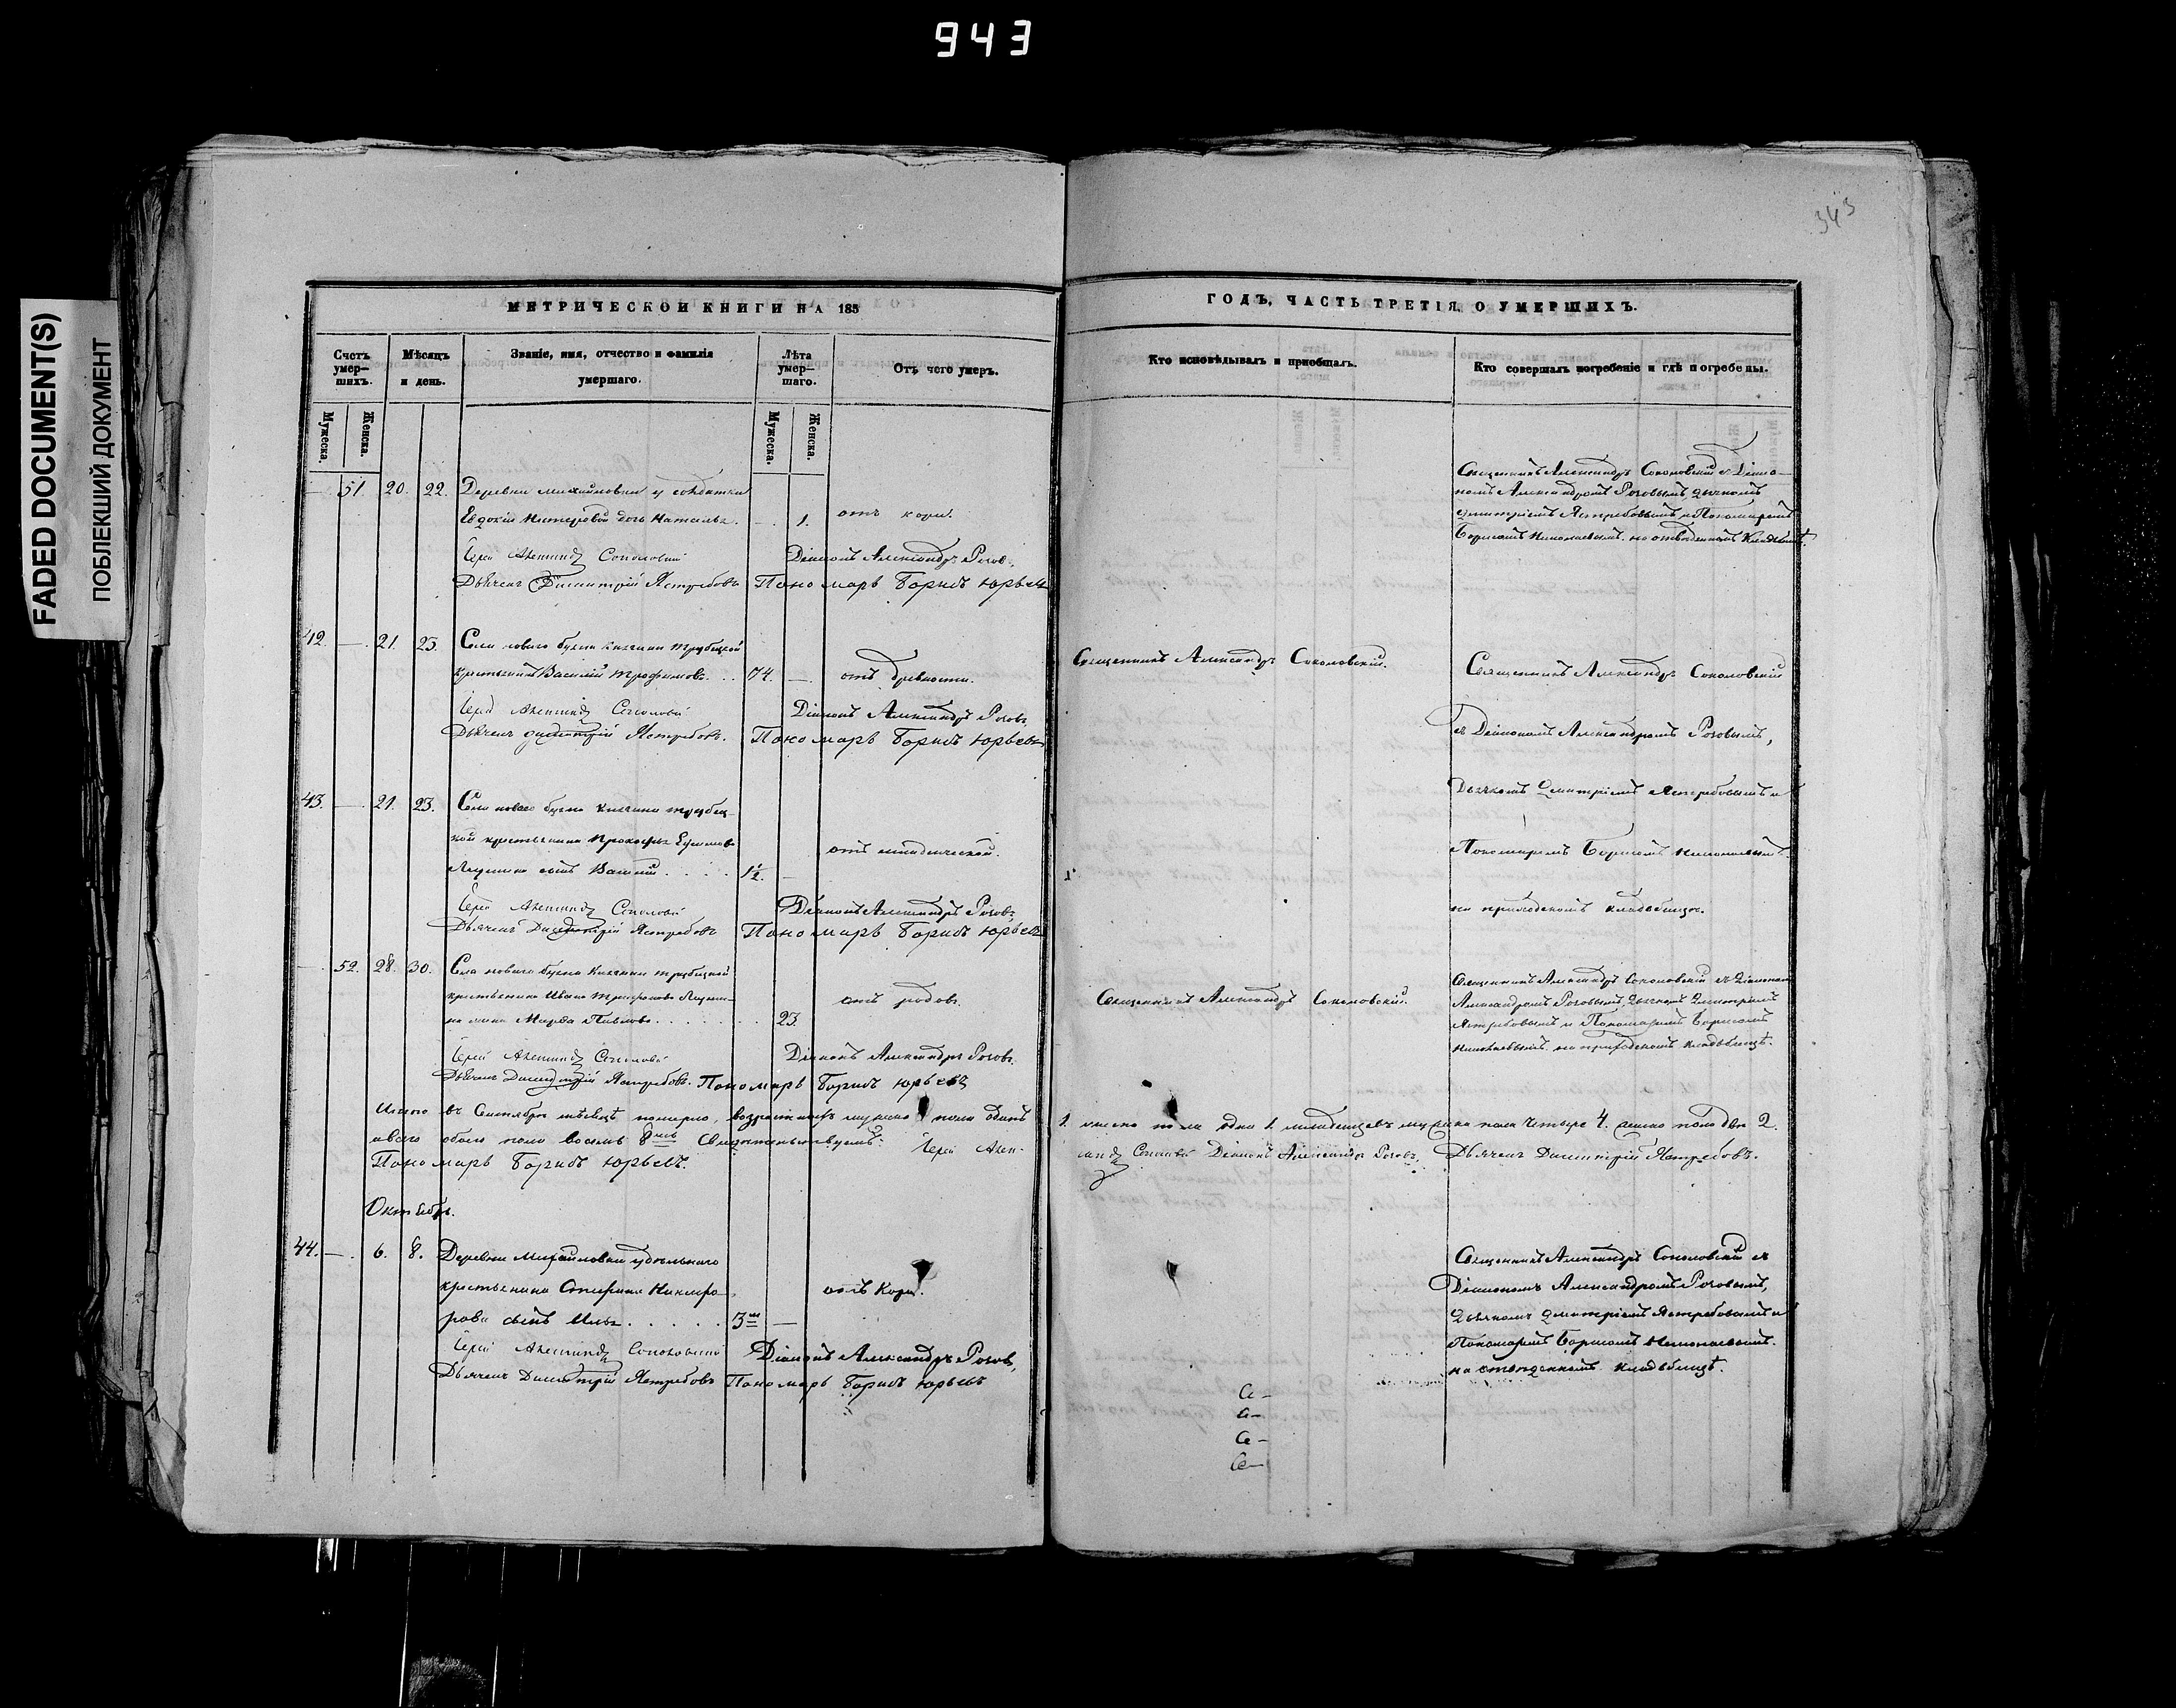 943
FADED DOCUMENT(S)
ПОБЛЕКШИЙ ДОКУМЕНТ
343
МЕТРИЧЕСКОЙ КНИГИ НА 185
ГОДЪ, ЧАСТЬ ТРЕТІЯ, О УМЕРШИХЪ.
Счетъ умер—шихъ.
Мѣсяцъ и день.
Званіе, имя, отчество и фамилія умершаго.
Лѣта умер—шаго.
Отъ чего умеръ.
Кто исповѣдывалъ и пріобщалъ.
Кто совершалъ погребеніе и гдѣ погребены.
Мужеска.
Женска.
Мужеска.
Женска.
51 20. 22. Деревни Михайловки у солдатки
Евдокіи дочь Наталья. 1. отъ кори.
Іерей Александръ Соколовскій Діаконъ Александръ Роговъ
Дьячекъ Димитрій Ястребовъ Пономарь Борисъ Юрьевъ
Священникъ Александръ Соколовскій съ Діако—
номъ Александромъ Роговымъ, дьячкомъ
Димитріемъ Ястребовымъ и Пономаремъ
Борисомъ Николаевымъ. на отведенномъ кладбищѣ.
42. — 21. 23. Села новаго Княгини Трубецкой
крестьянинъ Василій Трофимовъ. . . 74. — отъ древности.
Іерей Александръ Соколовскій Діаконъ Александръ Роговъ
Дьячекъ Димитрій Ястребовъ. Пономарь Борисъ Юрьевъ
Священникъ Александръ Соколовскій.
Священникъ Александръ Соколовскій
съ Діакономъ Александромъ Роговымъ,
Дьячкомъ Димитріемъ Ястребовымъ и
Пономаремъ Борисомъ Николаевымъ
на приходскомъ кладбищѣ.
43. — 21. 23. Села новаго Княгини Трубец—
кой крестьянина Прокофья
сынъ Василій . . . . 1½. — отъ младенческой.
Іерей Александръ Соколовскій Діаконъ Александръ Роговъ
Дьячекъ Димитрій Ястребовъ Пономарь Борисъ Юрьевъ
52. 28. 30. Села новаго Княгини Трубецкой
крестьянина Ивана Трифонова
жена Марфа Павлова . . . . . . . 23. отъ родовъ.
Іерей Александръ Соколовскій Діаконъ Александръ Роговъ.
Дьячекъ Димитрій Ястребовъ. Пономарь Борисъ Юрьевъ
Священникъ Александръ Соколовскій.
Священникъ Александръ Соколовскій съ Діакономъ
Александромъ Роговымъ, Дьячкомъ Димитріемъ
Ястребовымъ и Пономаремъ Борисомъ
Николаевымъ. на приходскомъ кладбищѣ.
Итого въ Сентябрѣ мѣсяцѣ померло, возрастныхъ мужеска пола одинъ 1. женска пола одна 1. младенцевъ мужеска пола четыре 4. женска пола двѣ 2.
а всего обоего пола восемь 8. Свидѣтельствуемъ: Іерей Алек-сандръ Соколовскій Діаконъ Александръ Роговъ, Дьячекъ Димитрій Ястребовъ.
Пономарь Борисъ Юрьевъ.
Октябрь.
44. — 6. 8. Деревни Михайловки удѣльнаго
крестьянина Никифо—
рова сынъ Илья . . . . . 3 — отъ Кори.
Іерей Александръ Соколовскій Діаконъ Александръ Роговъ,
Дьячекъ Димитрій Ястребовъ Пономарь Борисъ Юрьевъ
Священникъ Александръ Соколовскій съ
Діакономъ Александромъ Роговымъ,
Дьячкомъ Димитріемъ Ястребовымъ и
Пономаремъ Борисомъ Николаевымъ.
на отведенномъ кладбищѣ.